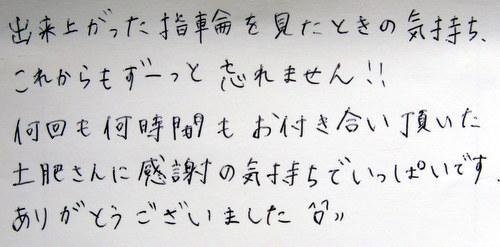 出来上がった指輪を見たときの気持ち、
これからもずーっと忘れません!!
何回も何時間もお付き合い頂いた
土肥さんに感謝の気持ちでいっぱいです.
ありがとうございました